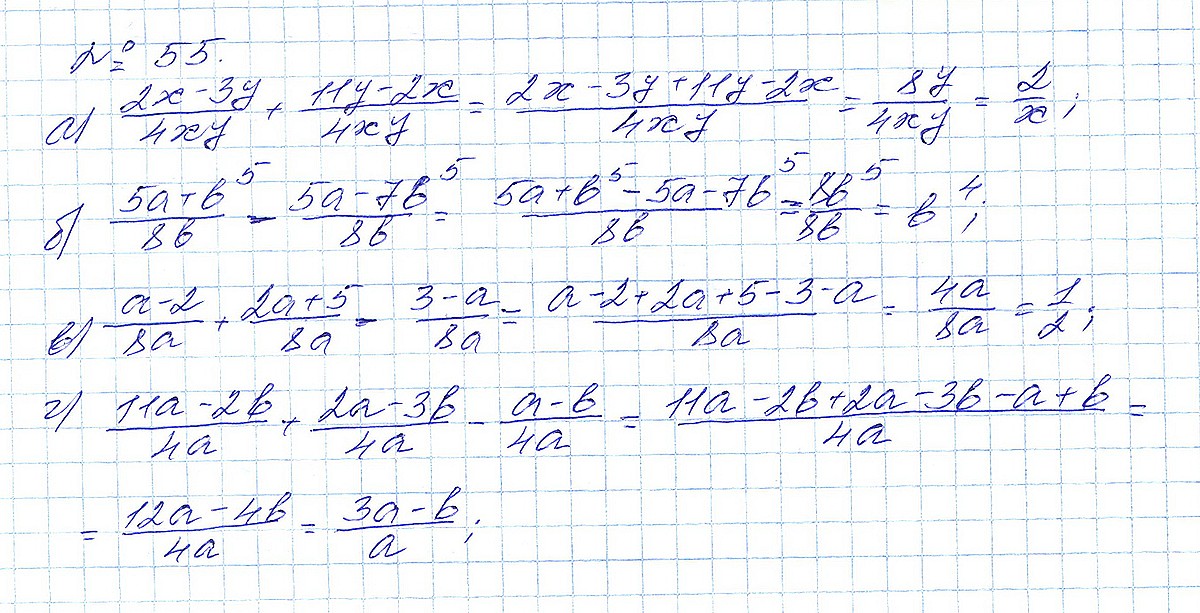 № 55.
а) (2x-3y)/(4xy) + (11y-2x)/(4xy) = (2x-3y+11y-2x)/(4xy) = (8y)/(4xy) = 2/x;
б) (5a+b⁵)/(8b) - (5a-7b⁵)/(8b) = (5a+b⁵-5a-7b⁵)/(8b) = (8b⁵)/(8b) = b⁴;
в) (a-2)/(8a) + (2a+5)/(8a) - (3-a)/(8a) = (a-2+2a+5-3-a)/(8a) = (4a)/(8a) = 1/2;
г) (11a-2b)/(4a) + (2a-3b)/(4a) - (a-b)/(4a) = (11a-2b+2a-3b-a+b)/(4a) =
= (12a-4b)/(4a) = (3a-b)/a;